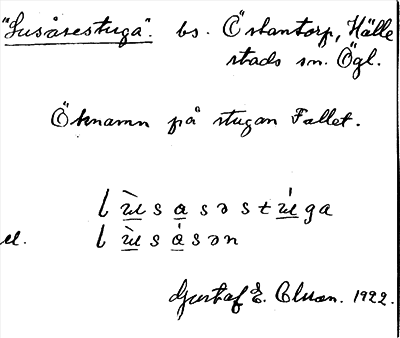 "Lusåsestuga". bs. Östantorp, Hälle
stads sn. Ögl.
Öknamn på stugan Fallet.
l ù s a s ə s t ú g a
el. l ù s á s ə n
Gustaf E. Olsson. 1922.